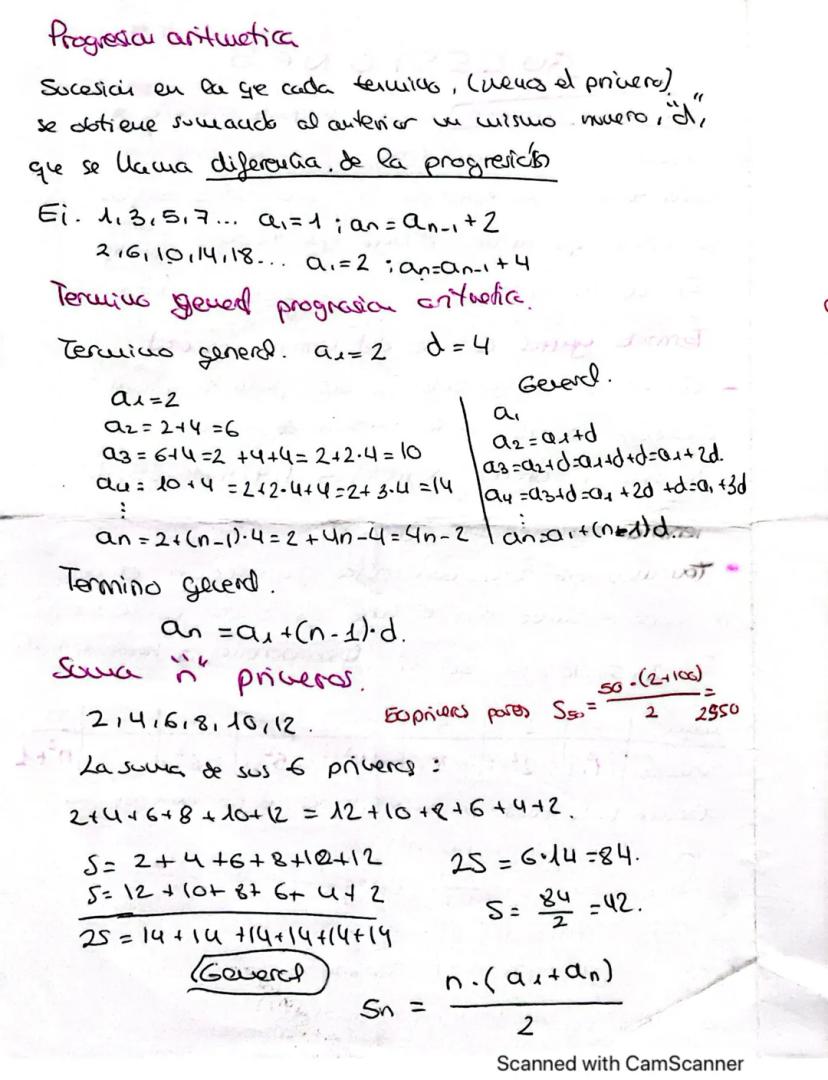 Progresion aritmetica
Sucesión en la qe cada termino, (menos el primero)
se obtiene sumando al anterior un mismo numero, "d",
que se llama diferencia de la progresión
Ej. 1, 3, 5, 7... a₁=1 ; an = an-1 + 2
2, 6, 10, 14, 18... a₁=2 ; an=an-1 + 4
Termino general progresion aritmetica.
Termino general. a₁=2 d = 4
General.
a₁=2
a₁
a2= 2+4 =6
a2=a1+d
a3= 6+4=2 +4+4= 2+2·4=10
a3=a2+d=a1+d+d=a1+2d.
a4= 10+4 =2+2·4+4=2+3·4=14
a4=a3+d=a1 +2d +d=a1+3d
⋮
⋮
an=2+(n-1)·4=2+4n-4=4n-2
an=a1+(n-1)d.
Termino general.
an = a1+(n-1)·d.
Suma "n" primeros.
2, 4, 6, 8, 10, 12.
50 primeros pares S50= 50·(2+100) / 2 = 2550
La suma de sus 6 primeros:
2+4+6+8+10+12 = 12+10+8+6+4+2.
S= 2+4+6+8+10+12
2S = 6·14 =84.
S= 12+10+8+6+4+2
S= 84/2 =42.
2S = 14+14+14+14+14+14
General
Sn = n·(a1+an) / 2
Scanned with CamScanner